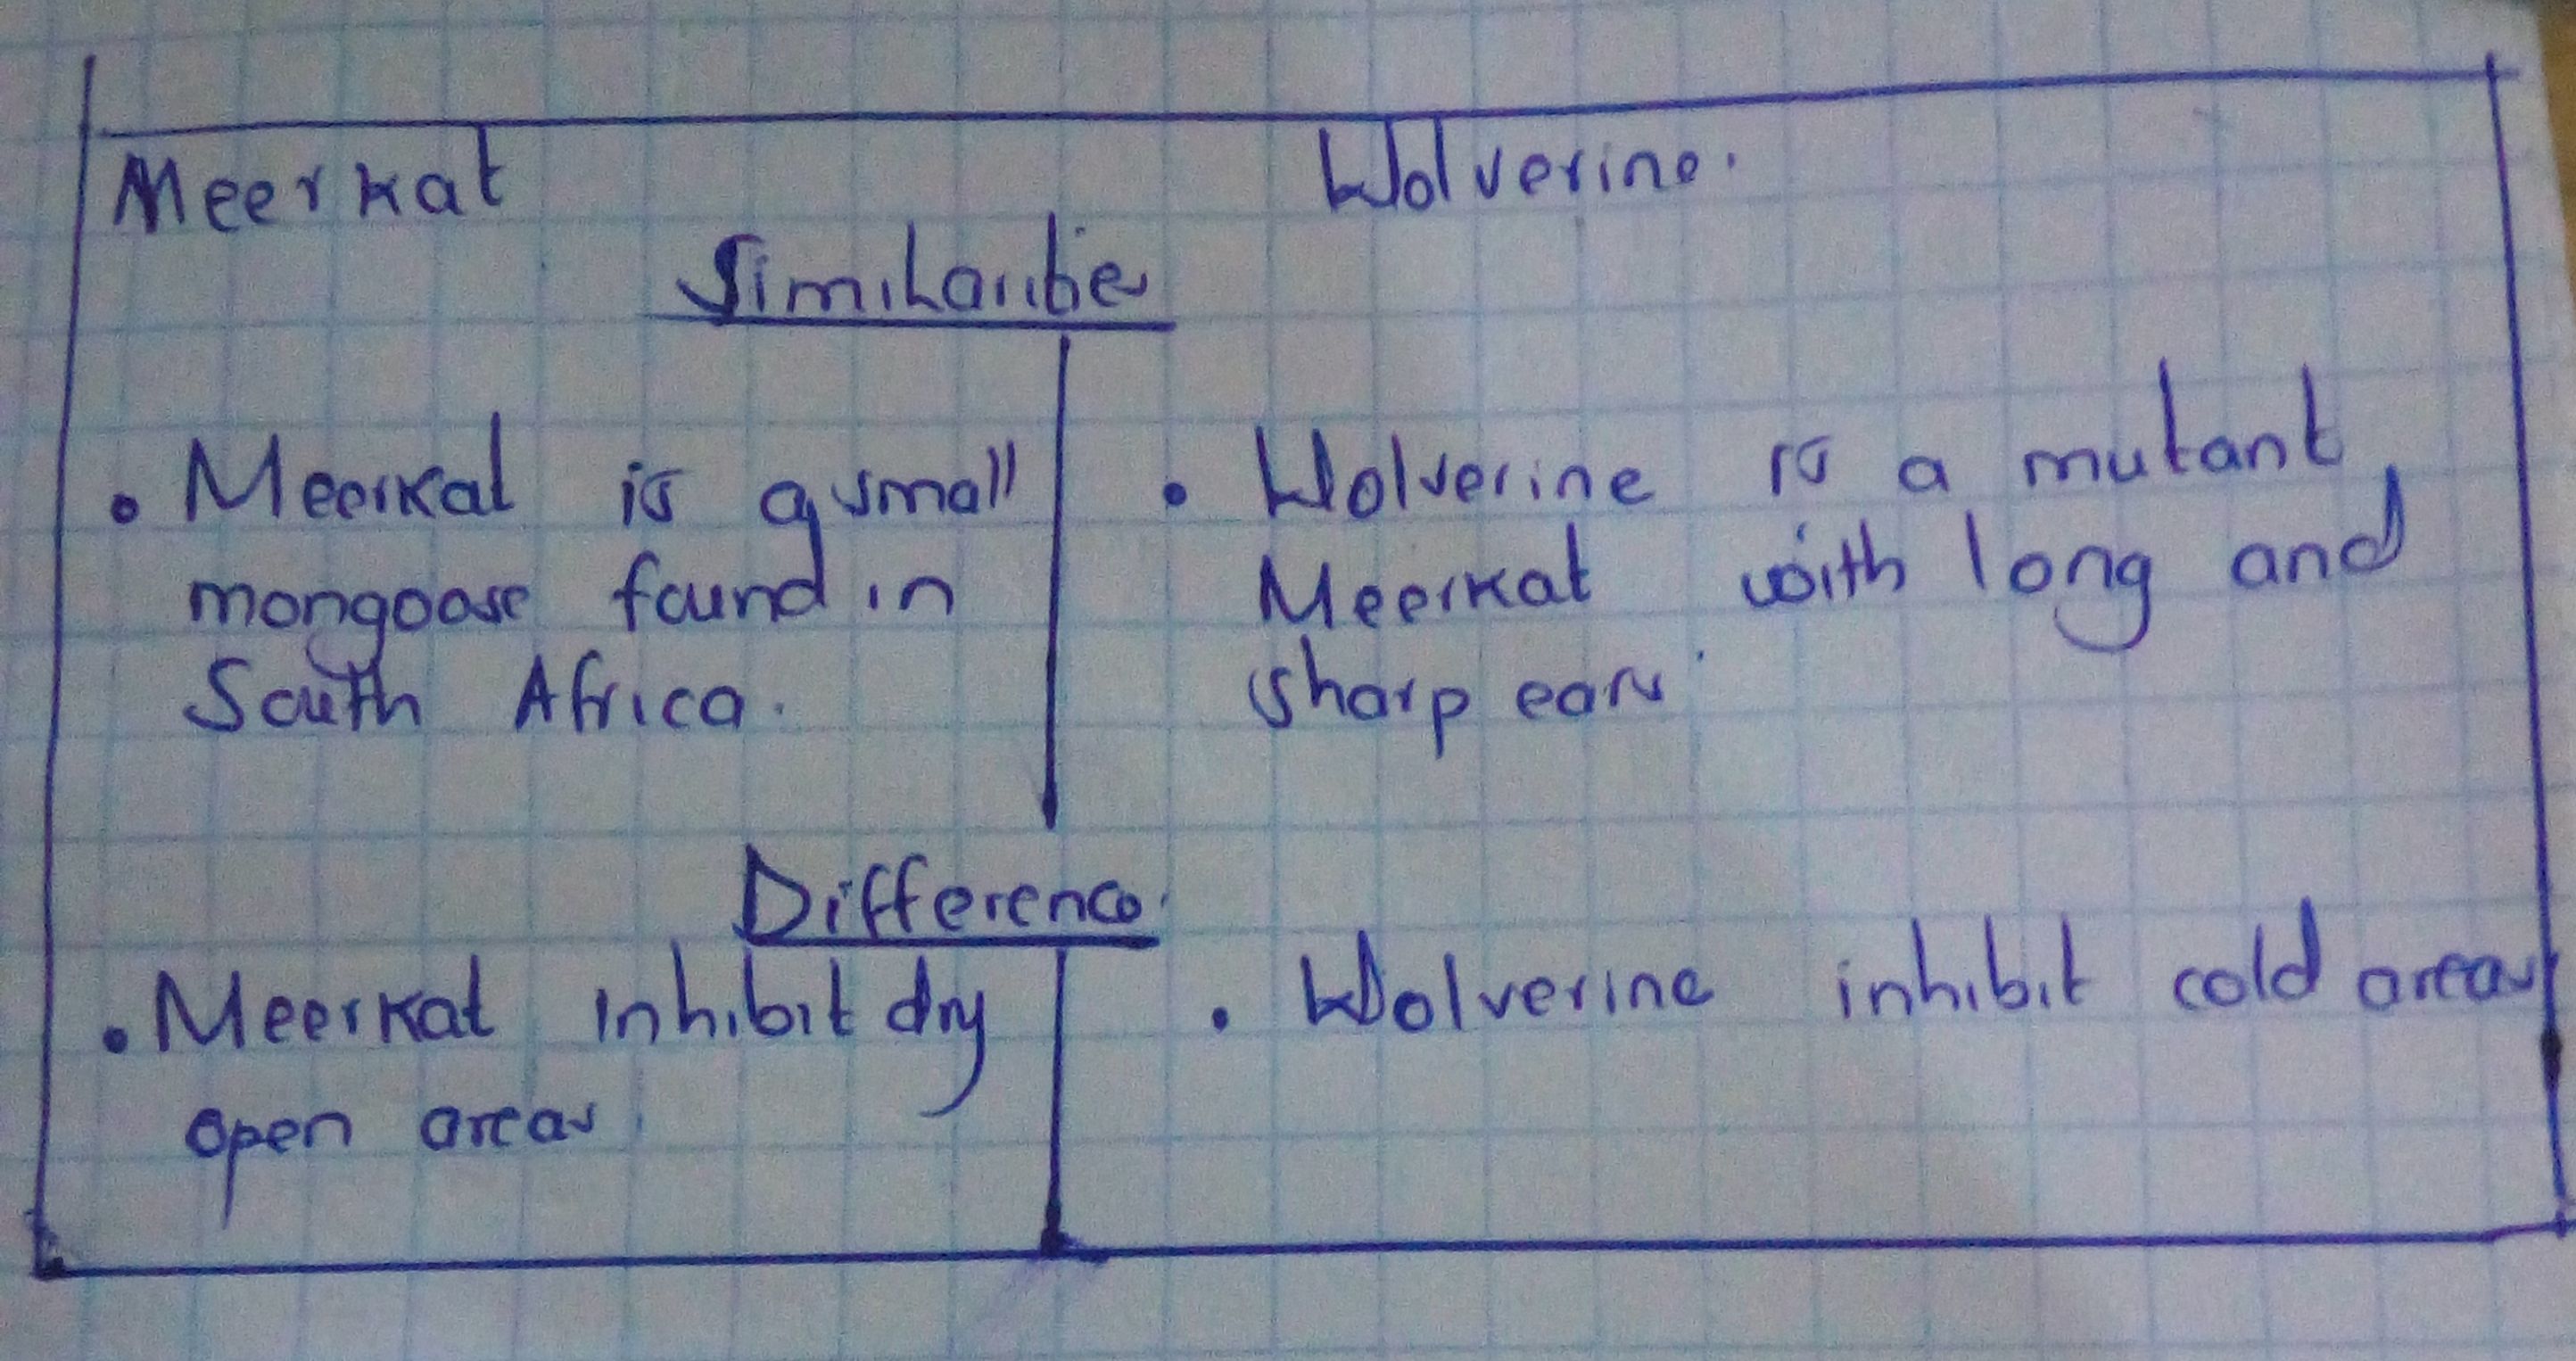 Meerkat Wolverine.
Similarities
• Meerkat is a small
mongoose found in
South Africa.
• Wolverine is a mutant,
Meerkat with long and
sharp ears.
Difference.
• Meerkat inhibit dry
open areas.
• Wolverine inhibit cold areas